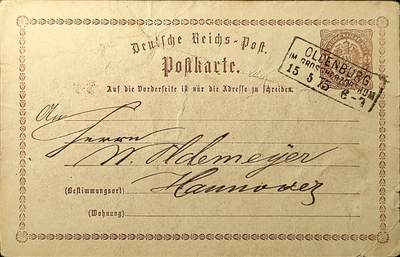 Deutsche Reichs-Post.
Postkarte.
OLDENBURG
IM GROSSHERZOGTHUM
15 5 75 8-9
Auf die Vorderseite ist nur die Adresse zu schreiben.
An
Herrn
W. Oldemeyer
(Bestimmungsort) Hannover
(Wohnung)